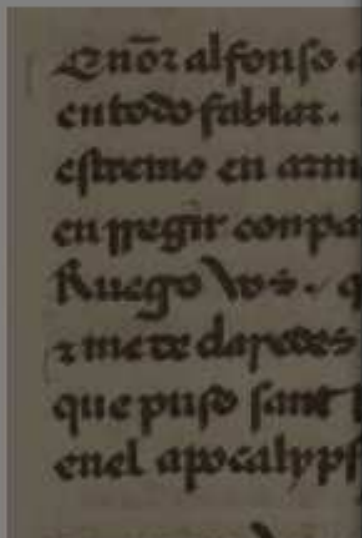 Señor alfonso a
en todo fablar.
estremo en arm
en rregir conpa
Ruego vos. q
que puso sant
enel apocalyps